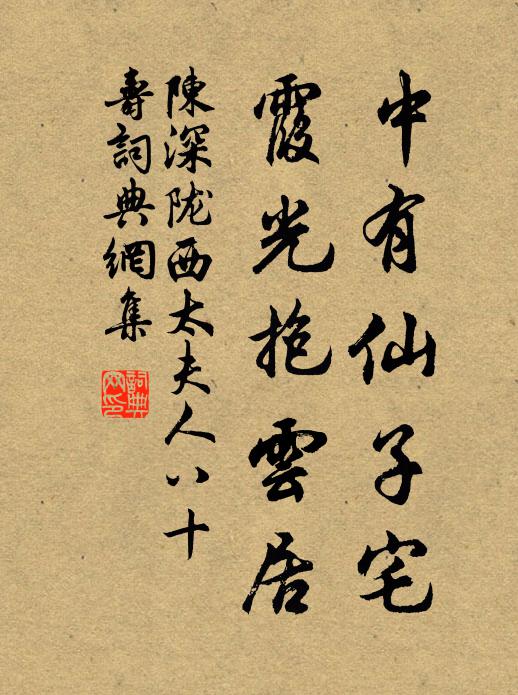 中有仙子宅
霞光抱雲居
陳深陇西太夫人八十
壽詞典網集
詞典
网印